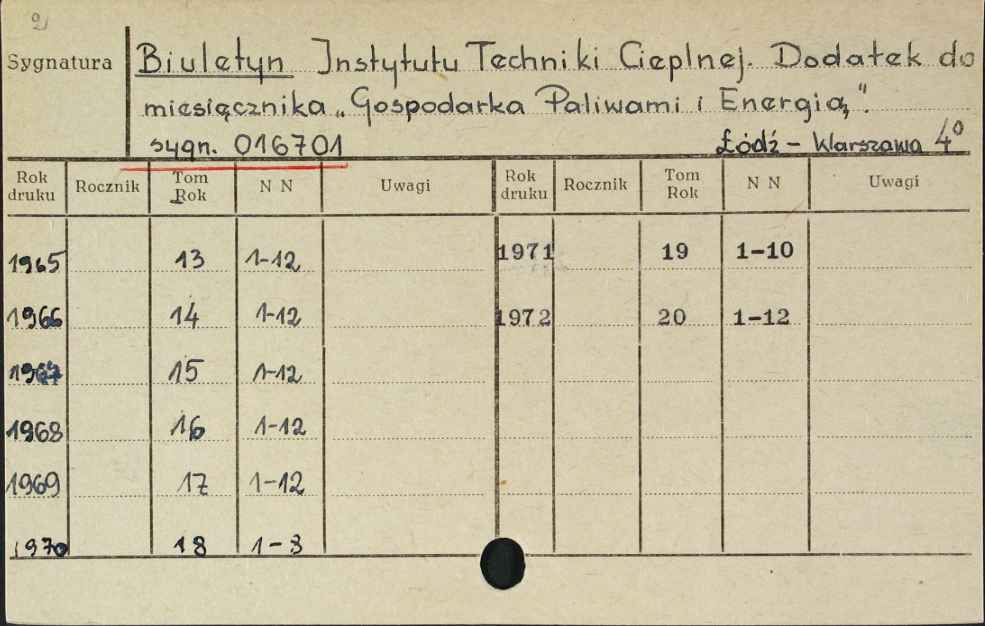 2
Sygnatura
Biuletyn Instytutu Techniki Cieplnej. Dodatek do
miesięcznika „Gospodarka Paliwami i Energią".
sygn. 016701 Łódź – Warszawa 4°
Rok druku Rocznik Tom Rok N N Uwagi Rok druku Rocznik Tom Rok N N Uwagi
1965 13 1-12 1971 19 1-10
1966 14 1-12 1972 20 1-12
1967 15 1-12
1968 16 1-12
1969 17 1-12
1970 18 1-8